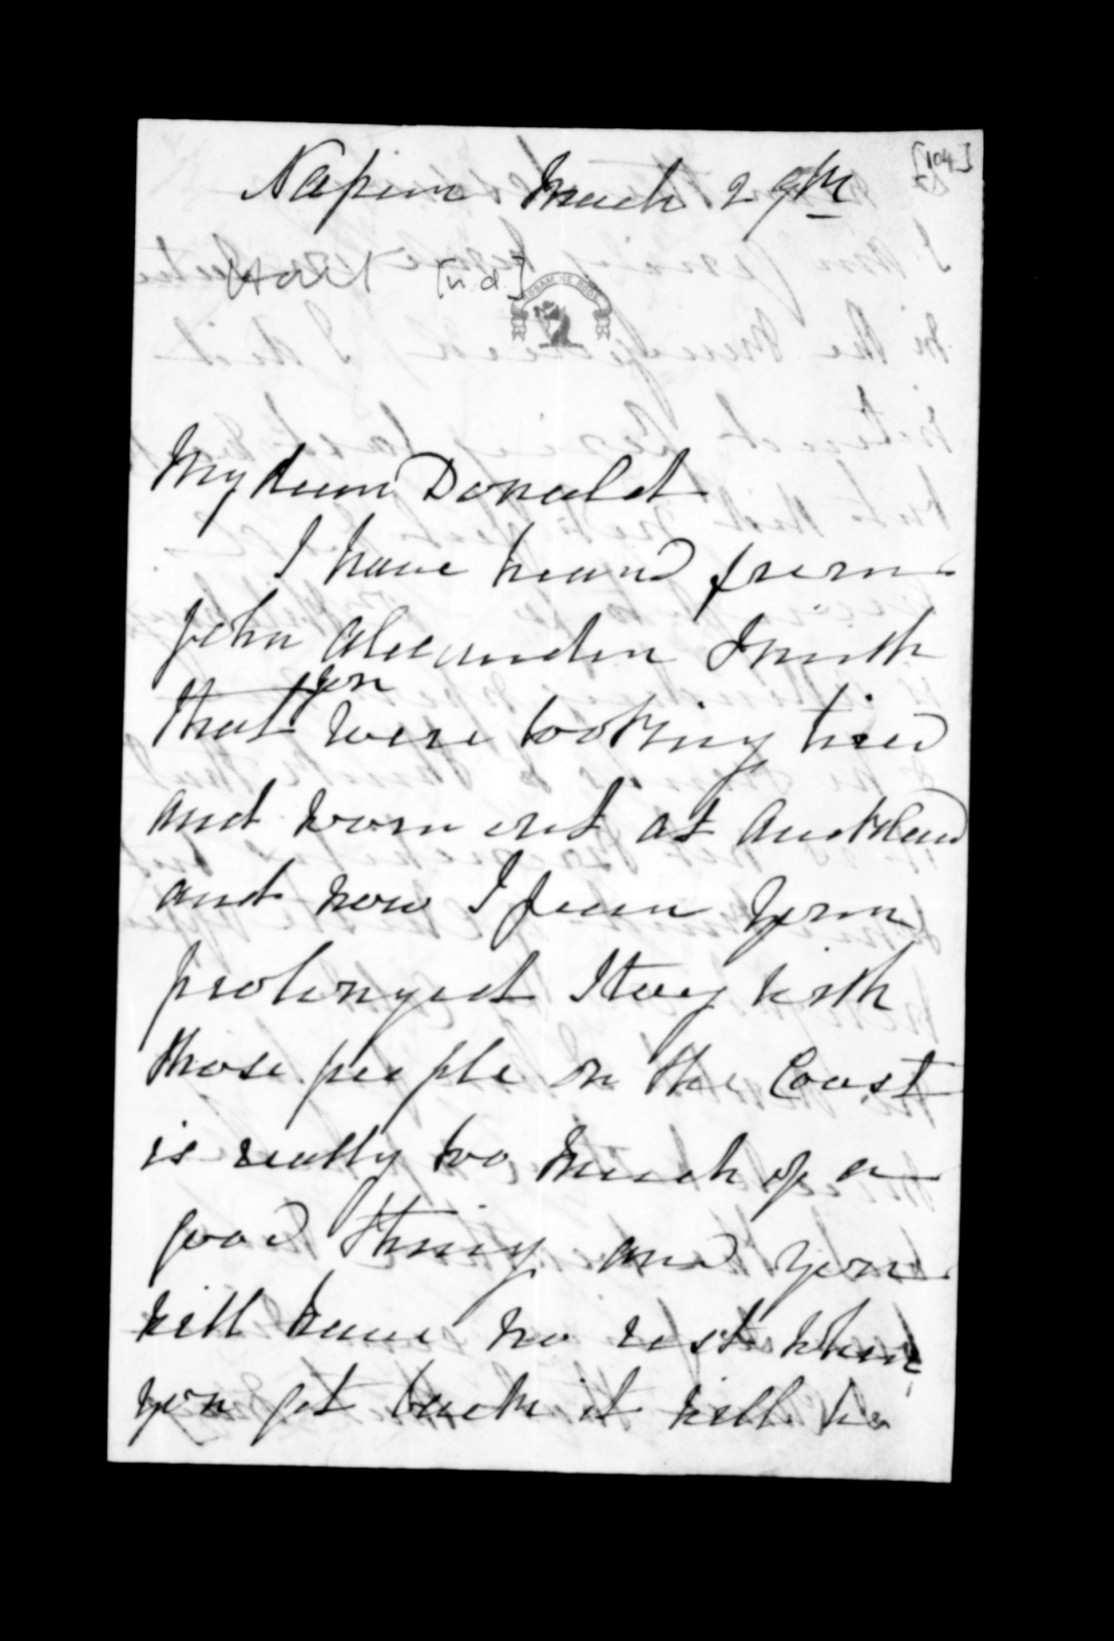 [104]
Napier March 29th
Hart [n.d.]
My dear Donald
I have heard from
John Alexander Smith
you
that were looking tired
and worn out at Auckland
and now I fear your
prolonged stay with
those people on the Coast
is really too much of a
good thing and you
will have no rest when
you get back it will be